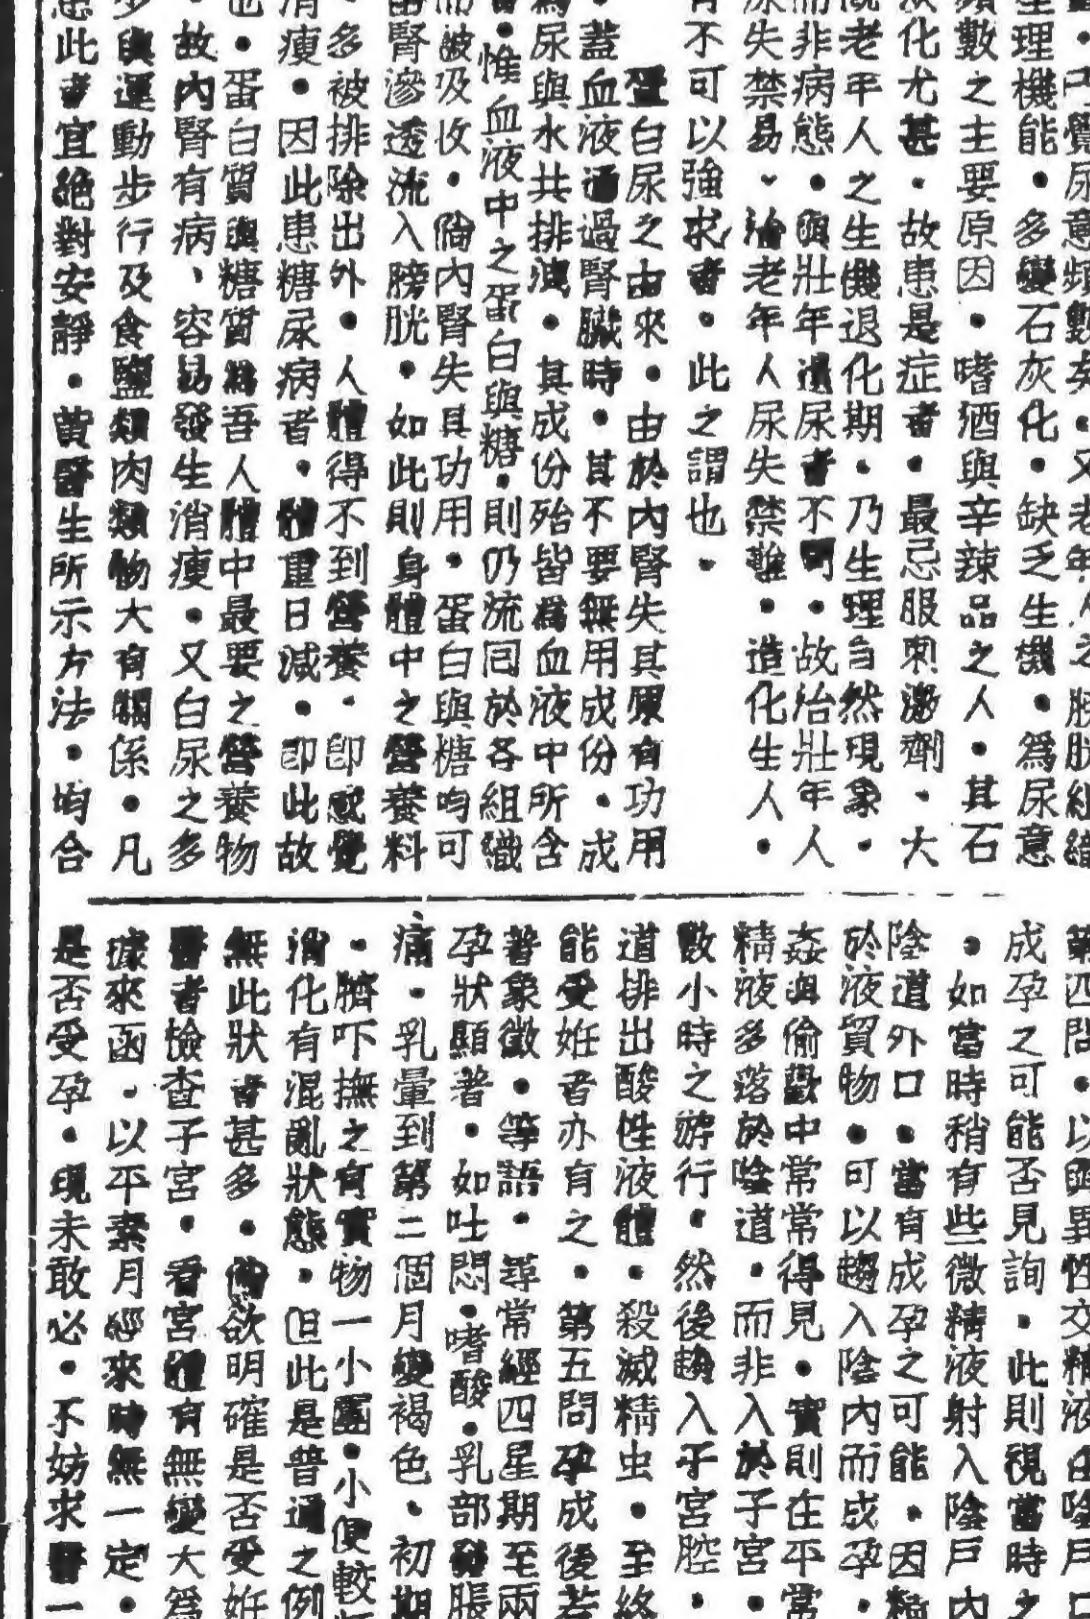 理機能・多變石灰化・缺乏生機・爲尿意
頻數之主要原因・嗜酒與辛辣品之人・其石
灰化尤甚・故患是症者・最忌服刺激劑・大
既老年人之生機退化期・乃生理自然現象・
而非病態・與壯年遺尿者不同・故治壯年人
尿失禁易・治老年人尿失禁難・造化生人・
有不可以強求者・此之謂也・
蛋白尿之由來・由於內腎失其原有功用
・蓋血液通過腎臟時・其不要無用成份・成
爲尿與水共排洩・其成份殆皆爲血液中所含
・惟血液中之蛋白與糖・則仍流回於各組織
而被吸收・倘內腎失其功用・蛋白與糖均可
由腎滲透流入膀胱・如此則身體中之營養料
・多被排除出外・人體得不到營養・即感覺
消瘦・因此患糖尿病者・體重日減・即此故
也・蛋白質與糖質爲吾人體中最要之營養物
・故內腎有病、容易發生消瘦・又白尿之多
少與運動步行及食鹽類肉類物大有關係・凡
患此者宜絕對安靜・黄醫生所示方法・均合
第四問・以與異性交精液在陰戶口
成孕之可能否見詢・此則視當時之
・如當時稍有些微精液射入陰戶內
陰道外口・當有成孕之可能・因精
於液質物・可以趨入陰內而成孕・
姦與偷歡中常常得見・實則在平常
精液多落於陰道・而非入於子宮・
數小時之游行・然後趨入子宮腔・
道排出酸性液體・殺滅精虫・至終
能受姙者亦有之・第五問孕成後若
普象徵・等語・尋常經四星期至兩
孕狀顯著・如吐悶・嗜酸・乳部發脹
痛・乳暈到第二個月變褐色・初期
・臍吓撫之有實物一小團・小便較
消化有混亂狀態・但此是普通之例
無此狀者甚多・倘欲明確是否受姙
醫者檢查子宮・看宮體有無變大爲
據來函・以平素月經來時無一定・
是否受孕・現未敢必・不妨求醫一